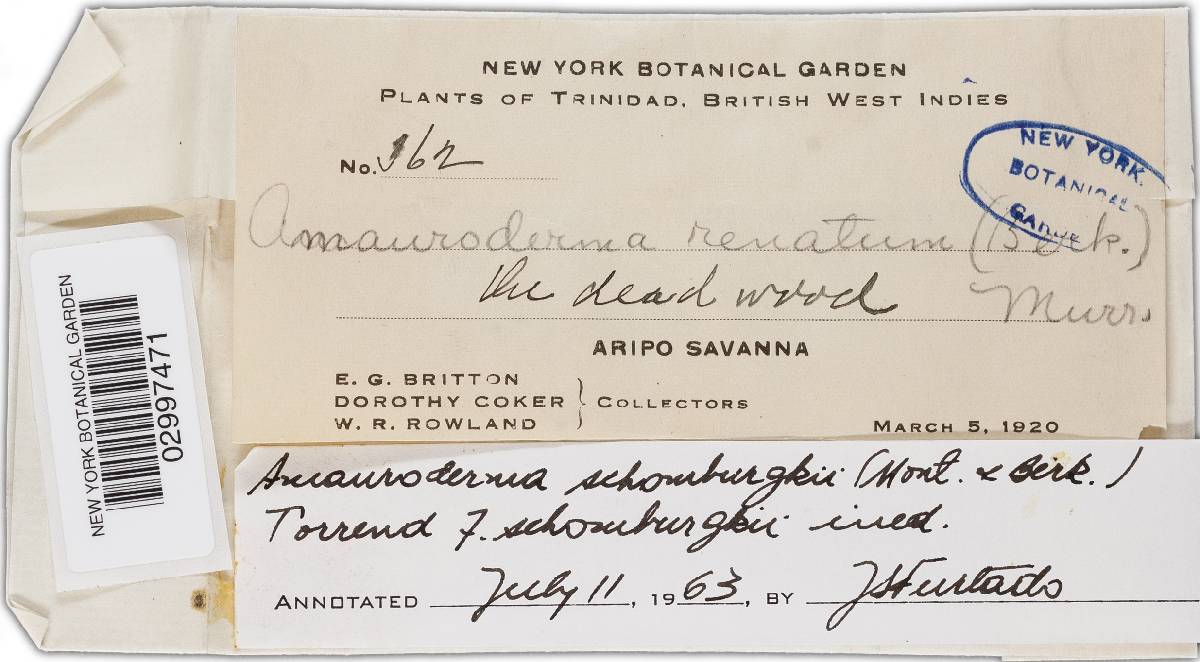 NEW YORK BOTANICAL GARDEN
PLANTS OF TRINIDAD, BRITISH WEST INDIES
No. 162
NEW YORK
BOTANICAL
GARDE
Amauroderma renatum (Berk.)
Murr.
the dead wood
ARIPO SAVANNA
E. G. BRITTON
DOROTHY COKER
W. R. ROWLAND
COLLECTORS
MARCH 5, 1920
NEW YORK BOTANICAL GARDEN
02997471
Amauroderma schomburgkii (Mont. & Berk.)
Torrend f. schomburgkii ined.
ANNOTATED July 11, 1963, BY JSFurtado